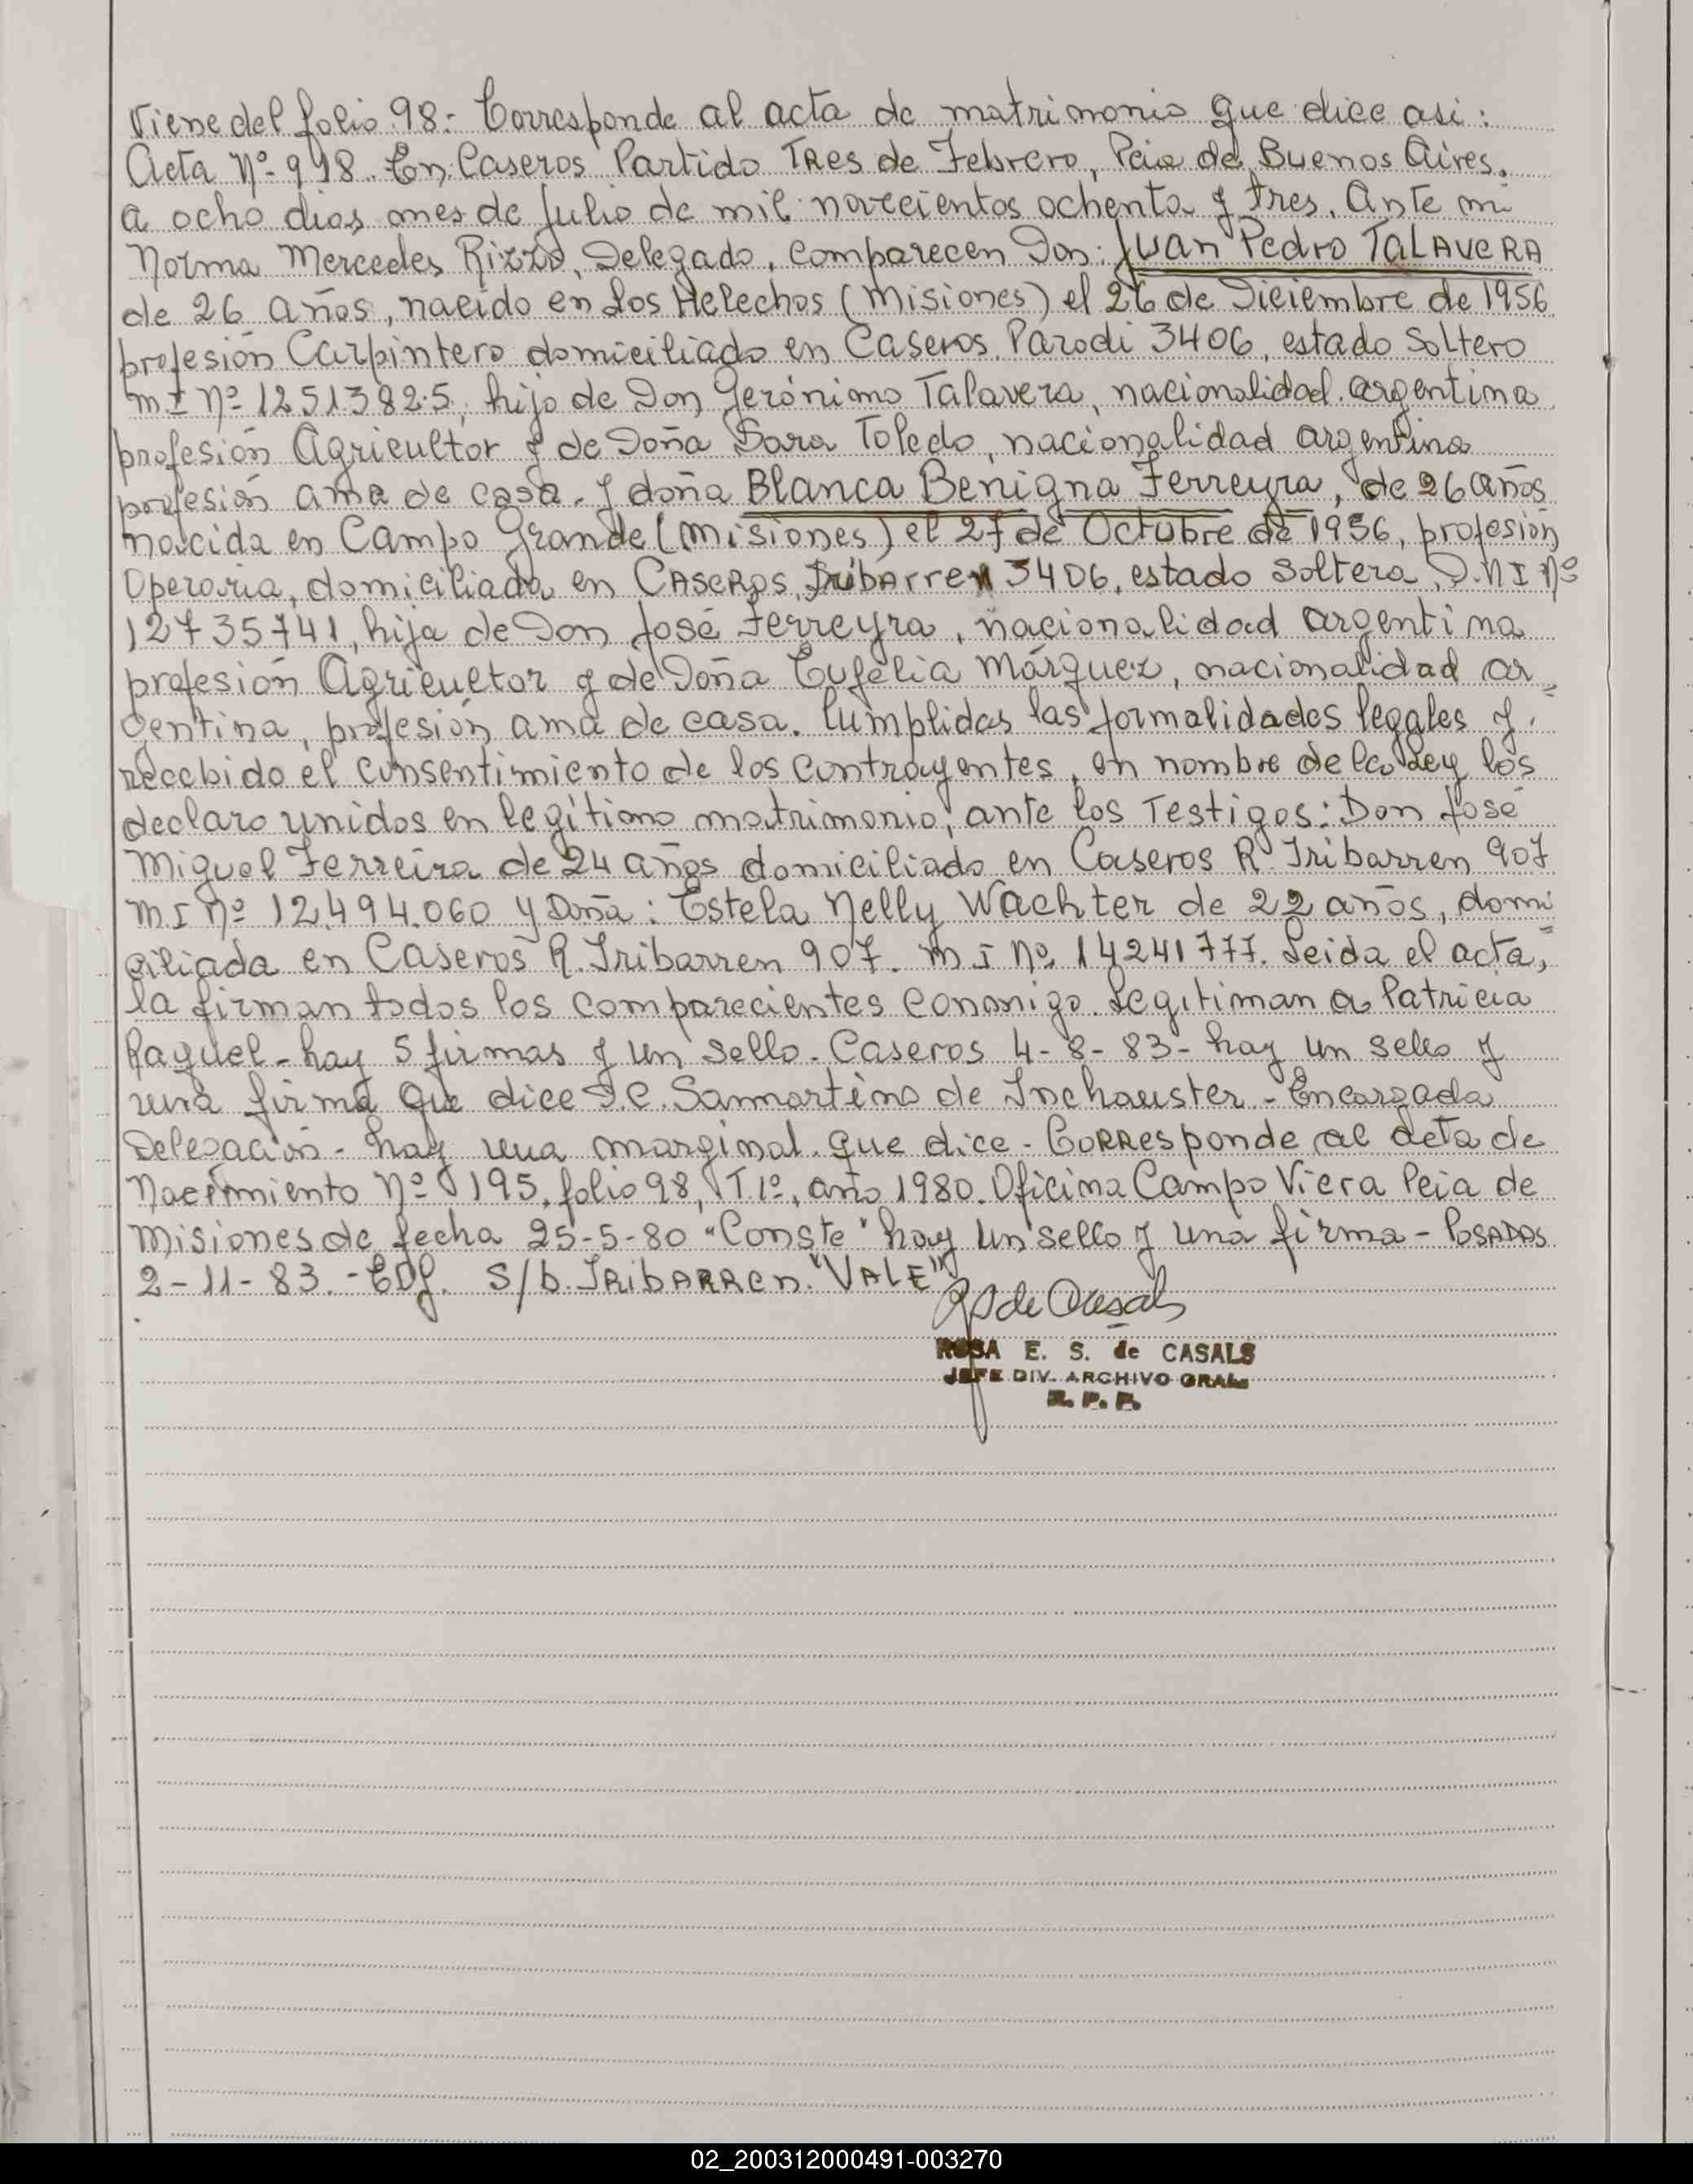 Viene del folio 98.- Corresponde al acta de matrimonio que dice asi:
Acta Nº 918. En Caseros Partido Tres de Febrero, Pcia de Buenos Aires.
a ocho dias mes de Julio de mil novecientos ochenta y tres. Ante mi
Norma Mercedes Rizzo, Delegado, comparecen Don: Juan Pedro TALAVERA
de 26 años, nacido en Los Helechos (Misiones) el 26 de Diciembre de 1956
profesión Carpintero domiciliado en Caseros. Parodi 3406, estado Soltero
M I Nº 12513825, hijo de Don Gerónimo Talavera, nacionalidad argentina
profesión Agricultor y de Doña Sara Toledo, nacionalidad argentina
profesión ama de casa. y doña Blanca Benigna Ferreyra, de 26 años
nacida en Campo Grande (Misiones) el 27 de Octubre de 1956, profesión
Operaria, domiciliada en CASEROS, Iribarren 3406, estado Soltera, D.N I Nº
12735741, hija de Don José Ferreyra, nacionalidad argentina
profesión Agricultor y de Doña Eufelia Márquez, nacionalidad ar=
gentina, profesión ama de casa. Cumplidas las formalidades legales y
recebido el consentimiento de los contrayentes, en nombre de la Ley los
declaro unidos en legítimo matrimonio, ante los Testigos: Don José
Miguel Ferreira de 24 años domiciliado en Caseros R. Iribarren 907
M I Nº 12.494.060 y Doña: Estela Nelly Wachter de 22 años, domi=
ciliada en Caseros R. Iribarren 907. M I Nº 14241777. Leida el acta,
la firman todos los comparecientes conmigo. Legitiman a Patricia
Raquel - hay 5 firmas y un sello. Caseros 4-8-83 - hay un sello y
una firma que dice I.C. Sanmartino de Inchauster - Encargada
Delegación - hay una marginal que dice - Corresponde al acta de
Nacimiento Nº 195, folio 98, T.1º, año 1980. Oficina Campo Viera Pcia de
Misiones de fecha 25-5-80 "Conste" hay un sello y una firma - POSADAS
2-11-83. - S/b. IRIBARREN. "VALE"
ROSA E. S. de CASALS
JEFE DIV. ARCHIVO GRAL
R. P. P.
02_200312000491-003270